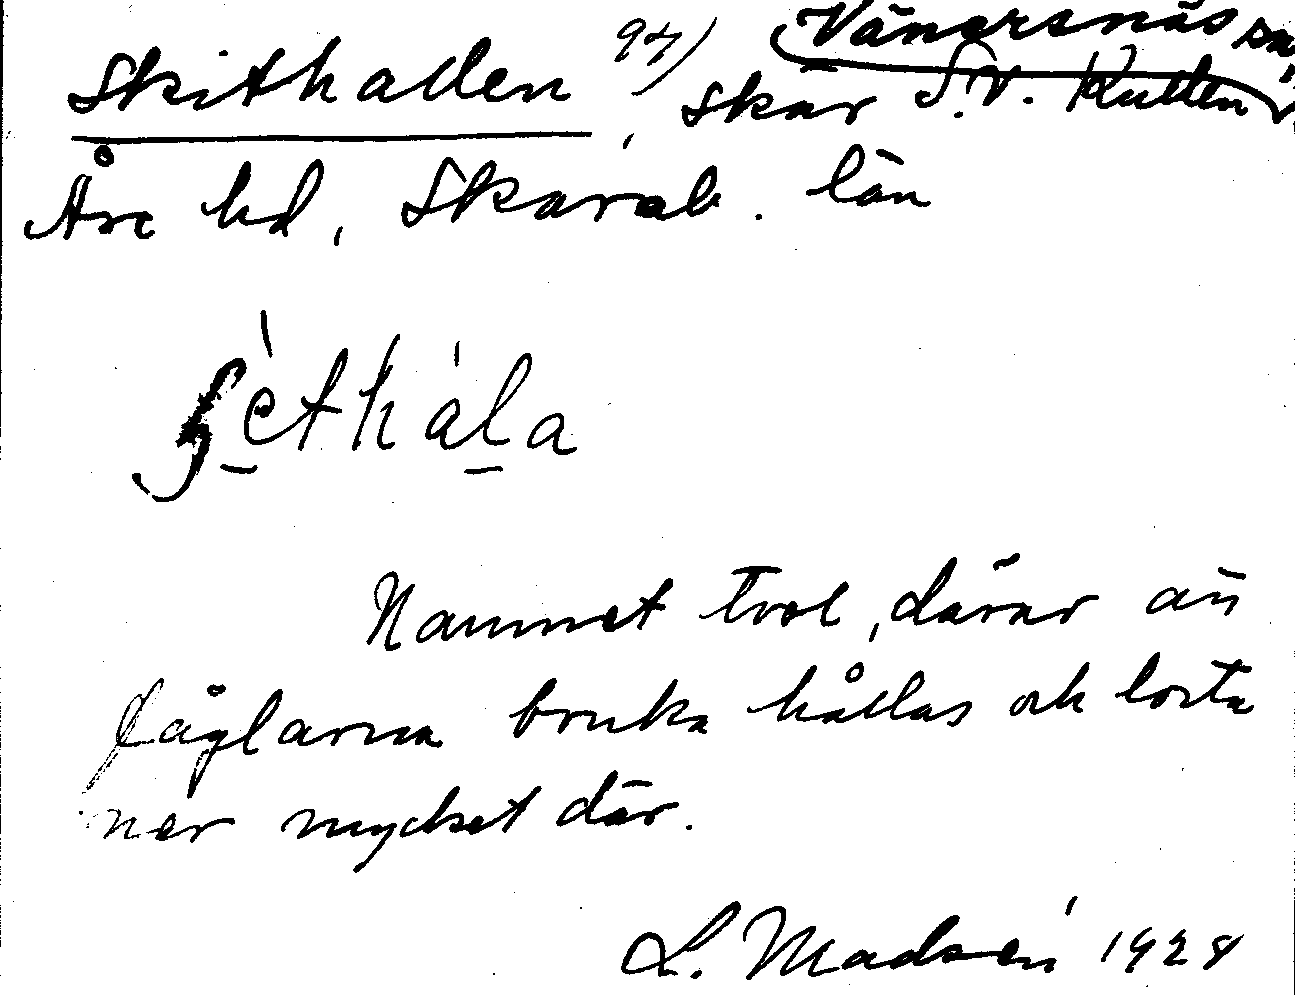 Vänersnäs sn,
Skithallen 94), skär S.V. Kullen
Åse hd, Skarab. län
ʃèthála
Namnet trol, därav att
fåglarna bruka hållas och lorta
ner mycket där.
L. Madsén 1928